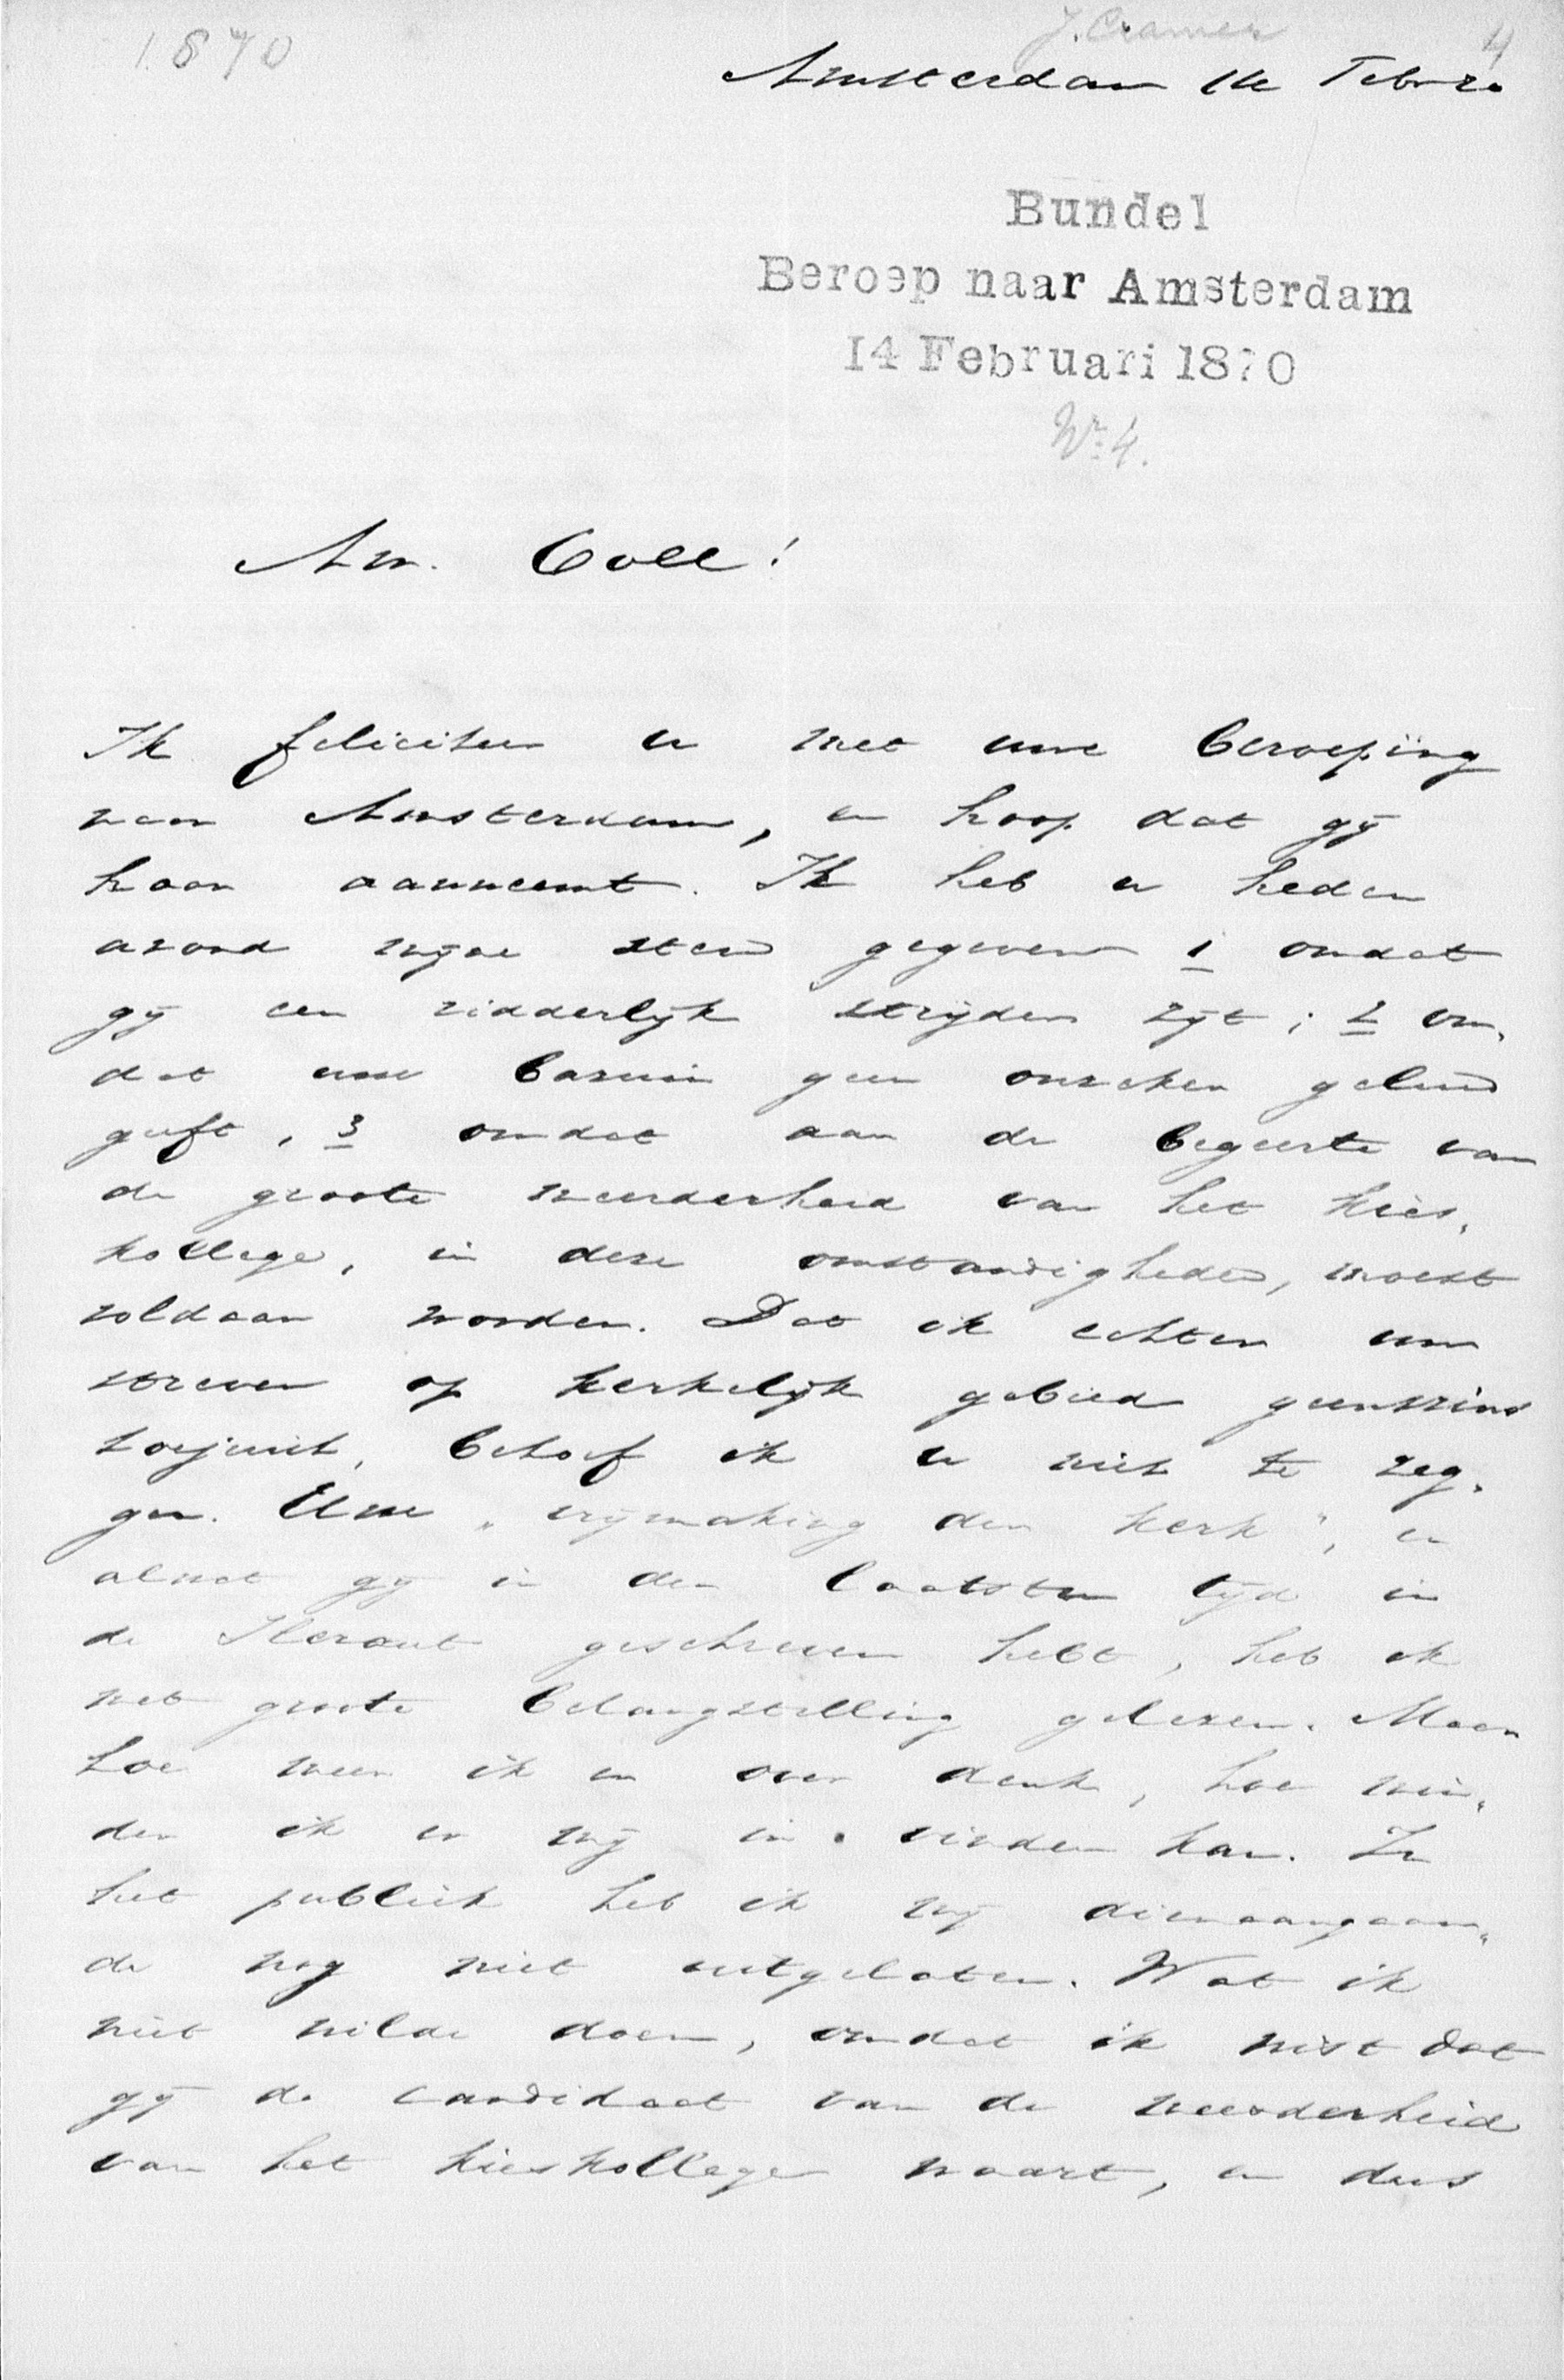 1870
J. Cramer
4
Amsterdam 14 Febr.
Bundel
Beroep naar Amsterdam
14 Februari 1870
Nr. 4.
Am. Coll!
Ik feliciteer u met uwe beroeping
naar Amsterdam, en hoop dat gij
haar aanneemt. Ik heb u heden
avond mijne stem gegeven 1 omdat
gij een ridderlijk strijder zijt; 2 om-
dat uwe bazuin geen onzeker geluid
geeft, 3 omdat aan de begeerte van
de groote meerderheid van het kies-
kollege, in deze omstandigheden, moest
voldaan worden. Dat ik echter uw
streven op kerkelijk gebied geenszins
toejuich, behoef ik u niet te zeg-
gen. Uwe "vrijmaking der kerk", en
alwat gij in den laatsten tijd in
de Heraut geschreven hebt, heb ik
met groote belangstelling gelezen. Maar
hoe meer ik er over denk, hoe min-
der ik er mij in vinden kan. In
het publiek heb ik mij dienaangaan-
de nog niet uitgelaten. Wat ik
niet wilde doen, omdat ik wist dat
gij de candidaat van de meerderheid
van het kieskollege waart, en dus